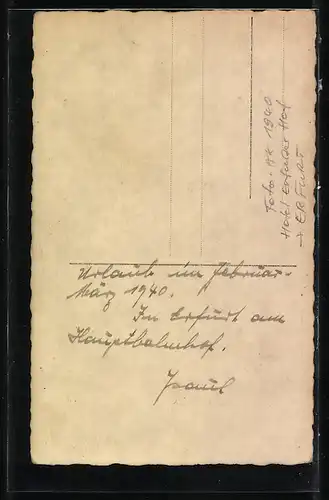 Urlaub im Februar-
März 1940.
In Erfurt am
Hauptbahnhof.
1940
Hotel Erfurter Hof
→ ERFURT